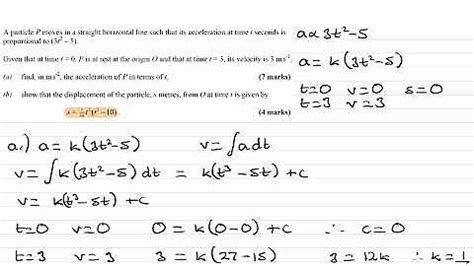 A particle P moves in a straight horizontal line such that its acceleration at time t seconds is
proportional to (3t² – 5).
Given that at time t = 0, P is at rest at the origin O and that at time t = 3, its velocity is 3 m s⁻¹,
(a) find, in m s⁻², the acceleration of P in terms of t, (7 marks)
(b) show that the displacement of the particle, s metres, from O at time t is given by
(4 marks)
a ∝ 3t² - 5
a = k(3t² - 5)
t=0 v=0 s=0
t=3 v=3
a) a = k(3t²-5) v = ∫ a dt
v = ∫ k(3t²-5) dt = k(t³ - 5t) + c
v = k(t³ - 5t) + c
t=0 v=0 0 = k(0-0) + c ∴ c = 0
t=3 v=3 3 = k(27-15) 3 = 12k ∴ k = 1